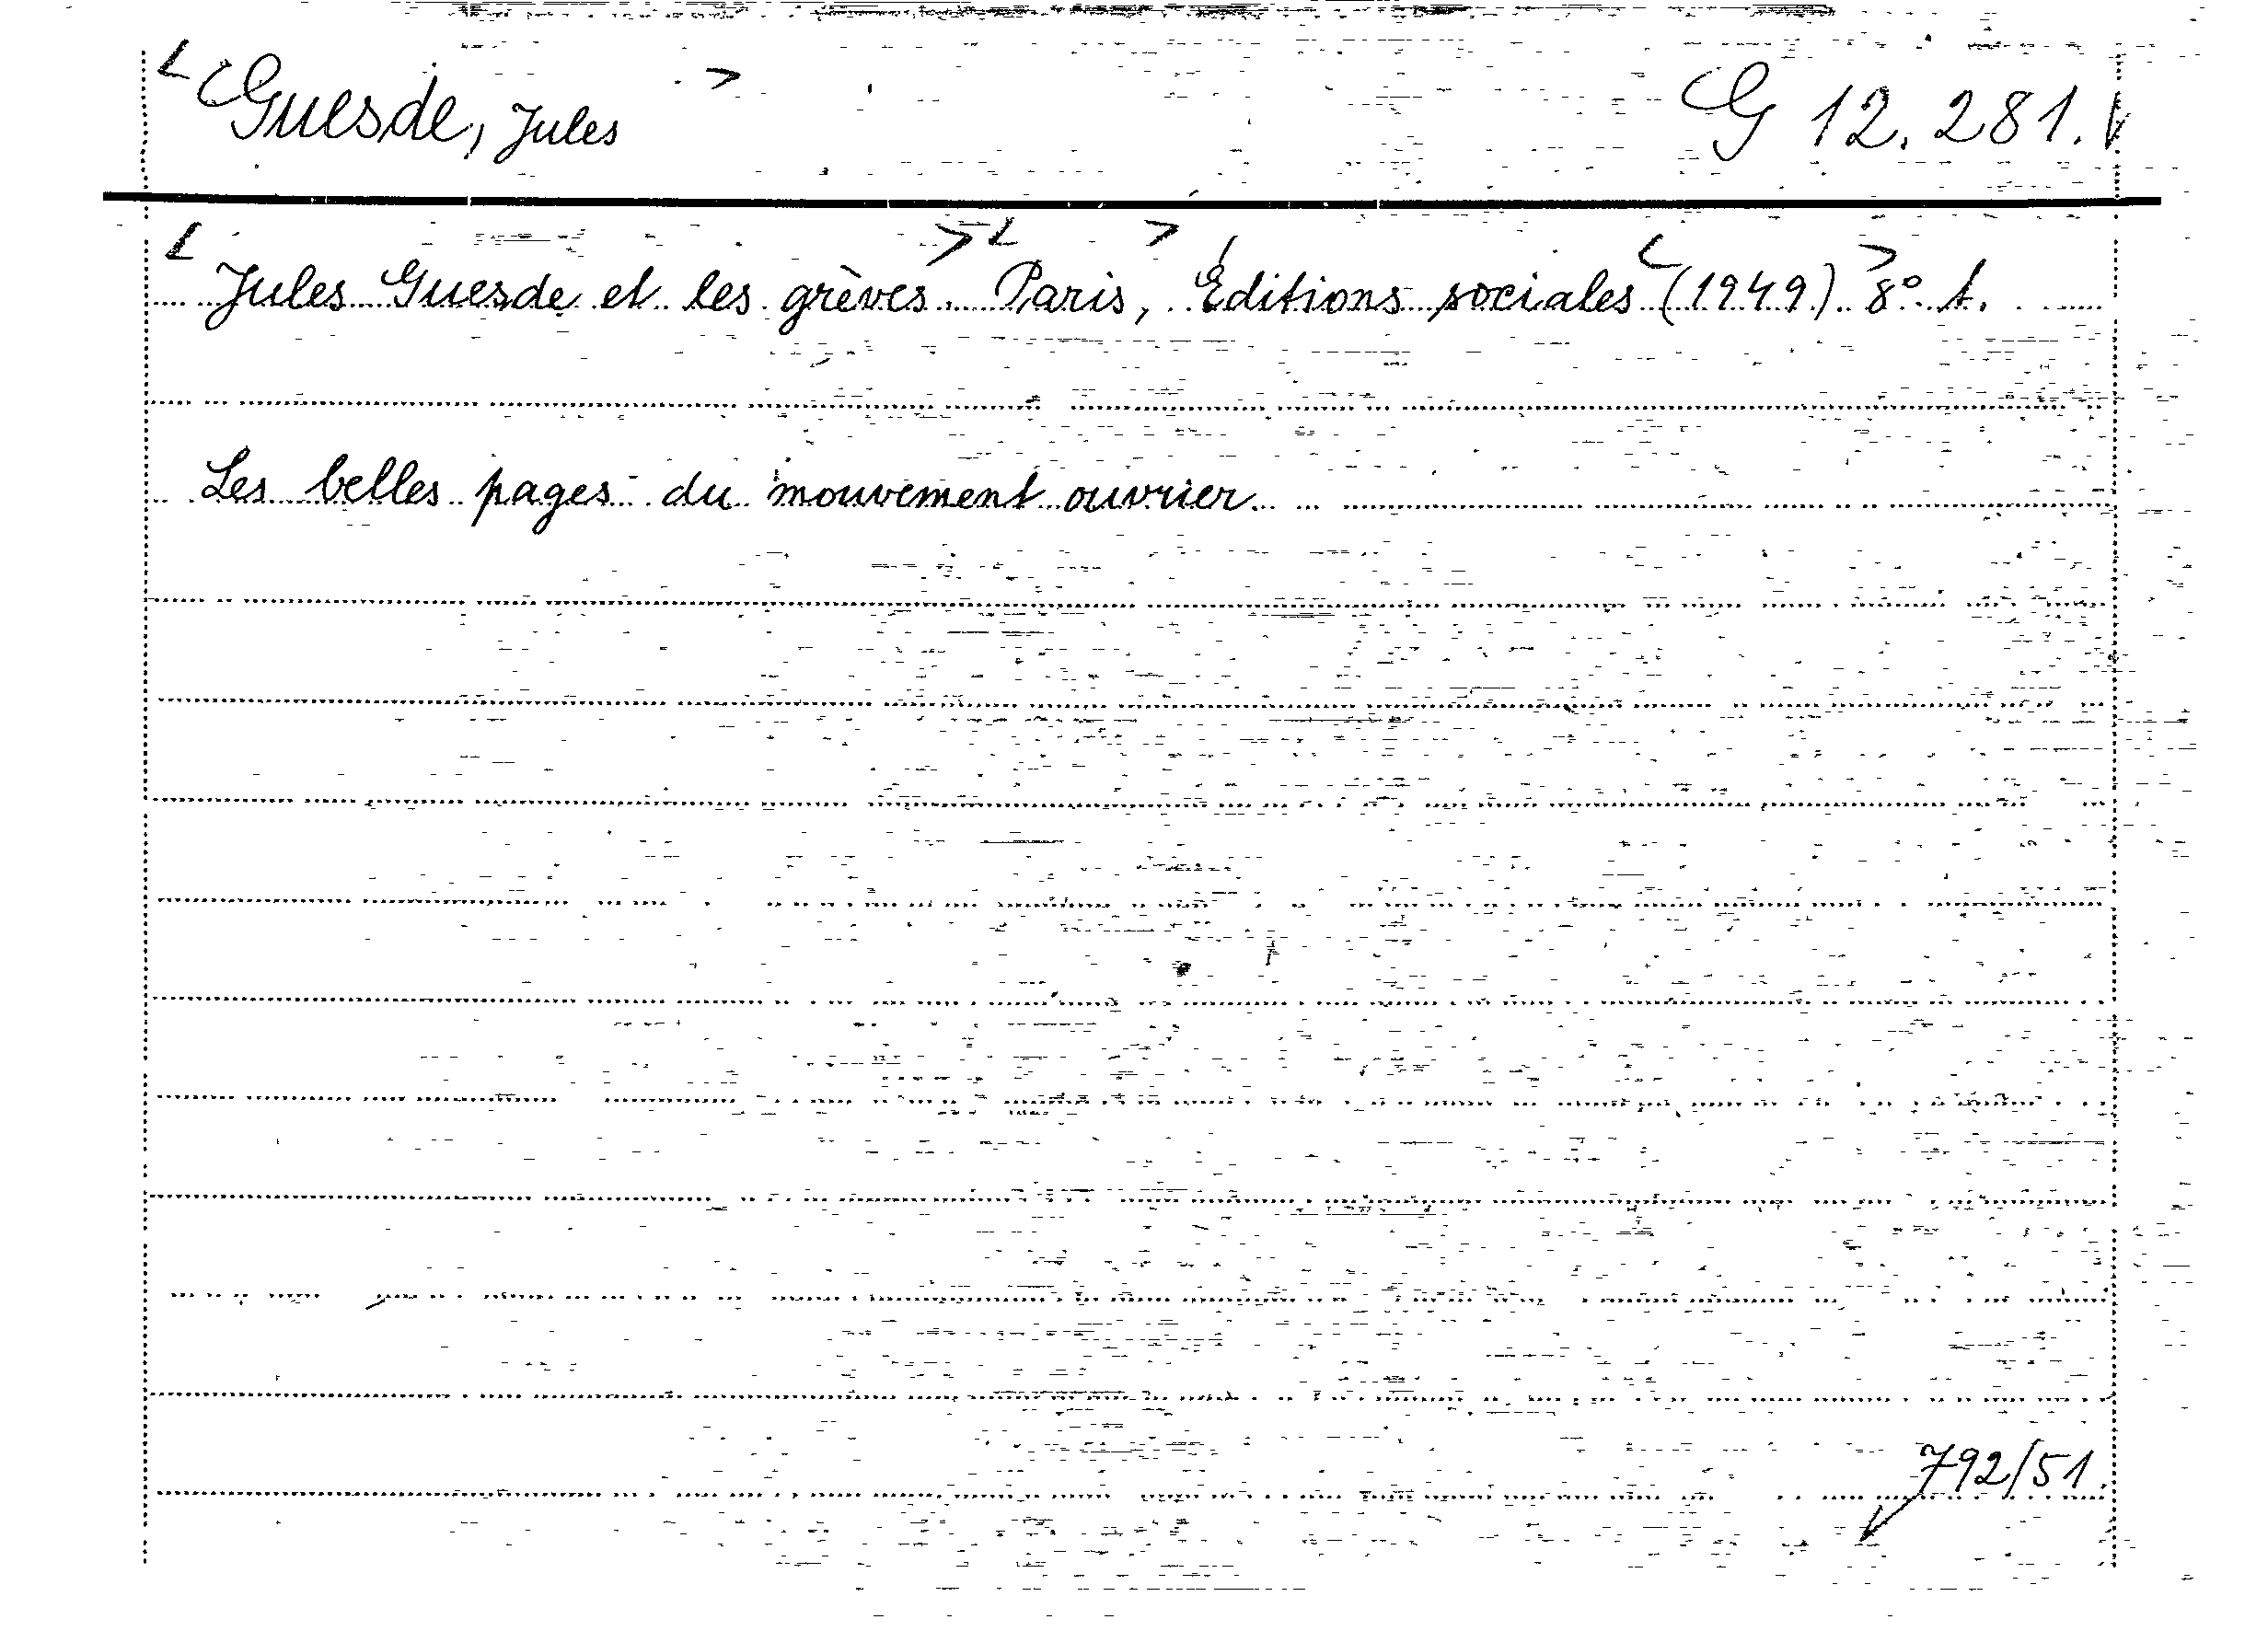 Guesde, Jules G 12.281.
Jules Guesde et les grèves. Paris, Éditions sociales (1949) 8° t.
Les belles pages du mouvement ouvrier.
792/51.